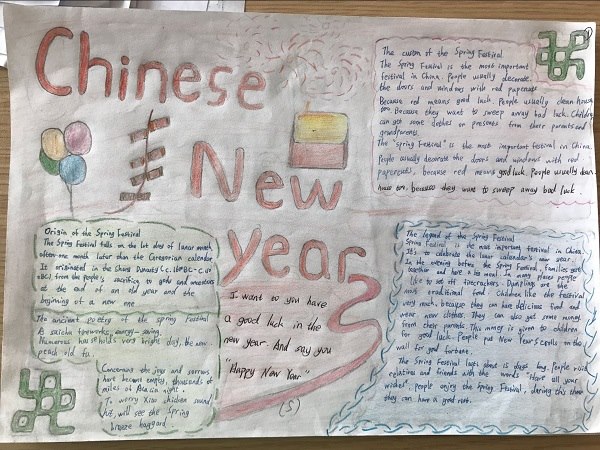 Chinese
New
year
The custom of the Spring Festival
The Spring Festival is the most important
festival in China. People usually decorate
the doors and windows with red papercuts
Because red means good luck. People usually clean house
too. Because they want to sweep away bad luck. Children
can get some clothes or presents from their parents and
grandparents.
The "spring Festival" is the most important festival in China.
People usually decorate the doors and windows with red
papercuts, because red means good luck. People usually clean
house too. because they want to sweep away bad luck.
Origin of the Spring Festival
The Spring Festival falls on the 1st day of lunar month,
often one month later than the Gregorian calendar.
It originated in the Shang Dynasty
BC) from the people's sacrifice to gods and ancestors
at the end of an old year and the
beginning of a new one
ancient poetry of the spring Festival
fireworks,
Numerous households very bright day, the new
peach old fu.
Concerning the joys and sorrows
have become empty, thousands of
miles of Acacia night.
To worry Xiao chicken sound
will see the Spring
breeze haggard.
I want to you have
a good luck in the
new year. And say you
"Happy New Year"
(5)
The legend of the Spring Festival
Spring Festival is the most important festival in China.
It's to celebrate the lunar calendar's new year.
In the evening before the Spring Festival, families get
together and have a big meal. In many places people
like to set off firecrackers. Dumplings are the
most traditional food. Children like the festival
very much, because they can have delicious food and
wear new clothes. They can also get some money
from their parents. This money is given to children
for good luck. People put New Year scrolls on the
wall for good fortune.
The Spring Festival lasts about 15 days long. People visit
relatives and friends with the words "Have all your
wishes". People enjoy the Spring Festival, during this
they can have a good rest.